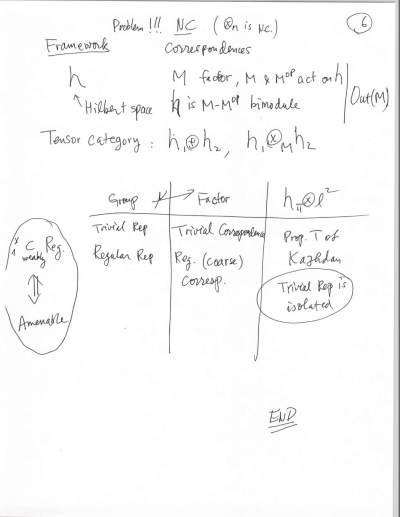 Problem!!! NC (⊗ₘ is NC.)
6
Framework Correspondences
h M factor, M & M^op act on h
↑ Hilbert space h is M-M^op bimodule
Out(M)
Tensor category: h₁⊕h₂, h₁⊗_M h₂
Group Factor
Trivial Rep Trivial Correspondence Prop. T of
Regular Rep Reg. (Coarse) Kazhdan
Corresp. Trivial Rep is
isolated
C Reg.
weakly
⇕
Amenable
END